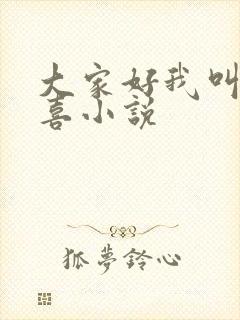 大家好我叫
喜小説
狐夢鈴心